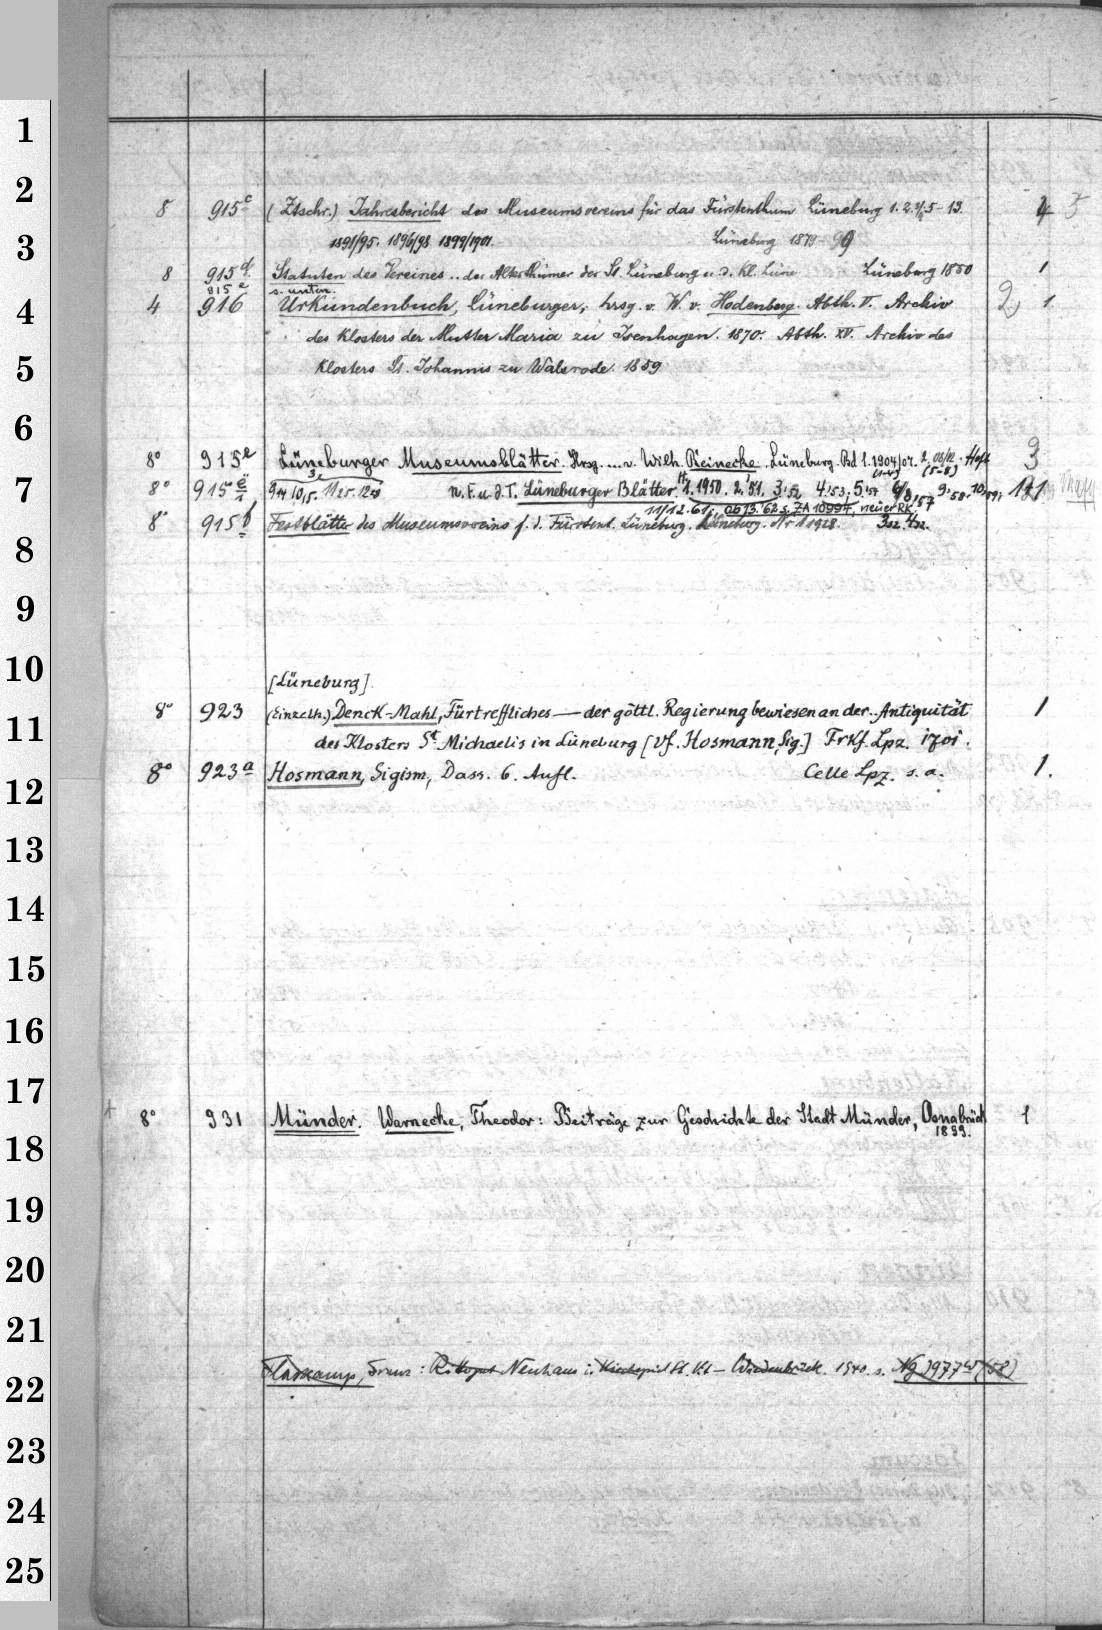 1
2
8 915c (Ztschr.) Jahresbericht des Museumsvereins für das Fürstenthum Lüneburg 1. 2. 5-13.
3
1891/95. 1896/98 1899/1901. Lüneburg 1879-99
8 915d Statuten des Vereines .. der Alterthümer der St. Lüneburg u. d. Kl. Lüne Lüneburg 1850 1
915e s. unten.
4
4 916 Urkundenbuch, Lüneburger, hrsg. v. W. v. Hodenberg. Abth. V. Archiv 2 1.
des Klosters der Mutter Maria zu Isenhagen. 1870. Abth. XV. Archiv des
5
Klosters St. Johannis zu Walsrode. 1859
6
8° 915e Lüneburger Museumsblätter. Hrsg. .... v. Wilh. Reinecke. Lüneburg. Bd 1. 1904/07. 3
7
8° 915 n. F. u. d. T. Lüneburger Blätter. H 1. 1950. 2.'51.
11/12.61; ob 13.'62 s. ZA 10994, neuer RK
8° 915f Festblätter des Museumsvereins f. d. Fürstent. Lüneburg. Lüneburg. Nr 1 1928.
8
9
10
[Lüneburg]
8° 923 (Einzelh.) Denck-Mahl, Fürtreffliches — der göttl. Regierung bewiesen an der.. Antiquität 1
11
des Klosters St. Michaelis in Lüneburg [Vf. Hosmann, Sig.] Frkf. Lpz. 1701.
8° 923a Hosmann, Sigism, Dass. 6. Aufl. Celle Lpz. s. a. 1.
12
13
14
15
16
17
8° 931 Münder. Warnecke, Theodor: Beiträge zur Geschichte der Stadt Münder, Osnabrück 1
1899.
18
19
20
21
Flaskamp, Franz: Neuhaus i. Kirchspiel St. Vit – Wiedenbrück. 1940. s.
22
23
24
25